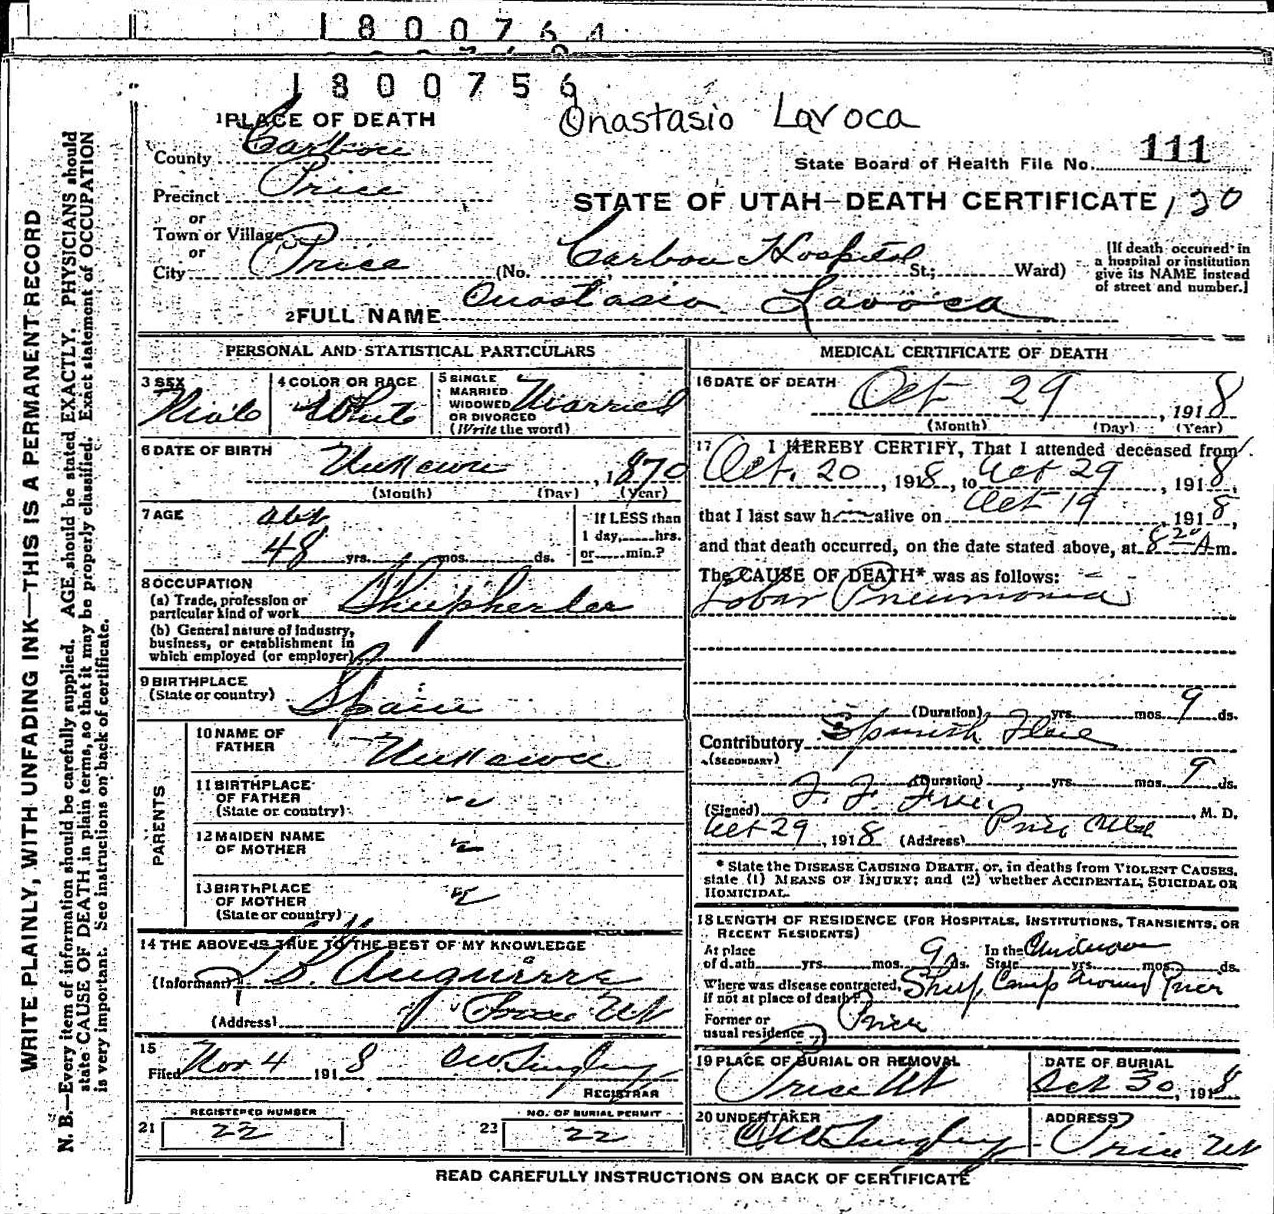 1800764
1800756
Onastasio Lavoca
1 PLACE OF DEATH
County Carbon
State Board of Health File No. 111
Precinct Price
STATE OF UTAH—DEATH CERTIFICATE 130
or
Town or Village
or
City Price (No. Carbon Hospital St.; Ward)
[If death occurred in
a hospital or institution
give its NAME instead
of street and number.]
2 FULL NAME Onastasio Lavoca
PERSONAL AND STATISTICAL PARTICULARS
3 SEX
Male
4 COLOR OR RACE
White
5 SINGLE
MARRIED
WIDOWED
OR DIVORCED
(Write the word)
Married
6 DATE OF BIRTH
Unknown , 1870
(Month) (Day) (Year)
7 AGE
abt
48 yrs. mos. ds.
If LESS than
1 day, hrs.
or min.?
8 OCCUPATION
(a) Trade, profession or
particular kind of work Sheepherder
(b) General nature of industry,
business, or establishment in
which employed (or employer)
9 BIRTHPLACE
(State or country) Spain
PARENTS
10 NAME OF
FATHER Unknown
11 BIRTHPLACE
OF FATHER
(State or country)
12 MAIDEN NAME
OF MOTHER
13 BIRTHPLACE
OF MOTHER
(State or country)
14 THE ABOVE IS TRUE TO THE BEST OF MY KNOWLEDGE
(Informant) Auguirre
(Address) Price Ut
15
Filed Nov 4 1918
REGISTRAR
REGISTERED NUMBER
21 22
NO. OF BURIAL PERMIT
23 22
MEDICAL CERTIFICATE OF DEATH
16 DATE OF DEATH
Oct 29 , 1918
(Month) (Day) (Year)
17 I HEREBY CERTIFY, That I attended deceased from
Oct. 20 , 1918, to Oct 29 , 1918,
that I last saw him alive on Oct 19 1918,
and that death occurred, on the date stated above, at 8 20 A m.
The CAUSE OF DEATH* was as follows:
Lobar Pneumonia
(Duration) yrs. mos. 9 ds.
Contributory Spanish Flue
(SECONDARY)
(Duration) yrs. mos. 9 ds.
(Signed) , M. D.
Oct 29 , 1918 (Address) Price Utah
* State the DISEASE CAUSING DEATH, or, in deaths from VIOLENT CAUSES,
state (1) MEANS OF INJURY; and (2) whether ACCIDENTAL, SUICIDAL OR
HOMICIDAL.
18 LENGTH OF RESIDENCE (FOR HOSPITALS, INSTITUTIONS, TRANSIENTS, OR
RECENT RESIDENTS)
At place
of death yrs. mos. 9 ds.
In the
State yrs. mos. ds.
Where was disease contracted,
if not at place of death? Sheep Camp around Price
Former or
usual residence Price
19 PLACE OF BURIAL OR REMOVAL
Price Ut
DATE OF BURIAL
Oct 30, 1918
20 UNDERTAKER
ADDRESS
Price Ut
READ CAREFULLY INSTRUCTIONS ON BACK OF CERTIFICATE
WRITE PLAINLY, WITH UNFADING INK—THIS IS A PERMANENT RECORD
N. B.—Every item of information should be carefully supplied. AGE should be stated EXACTLY. PHYSICIANS should
state CAUSE OF DEATH in plain terms, so that it may be properly classified. Exact statement of OCCUPATION
is very important. See instructions on back of certificate.